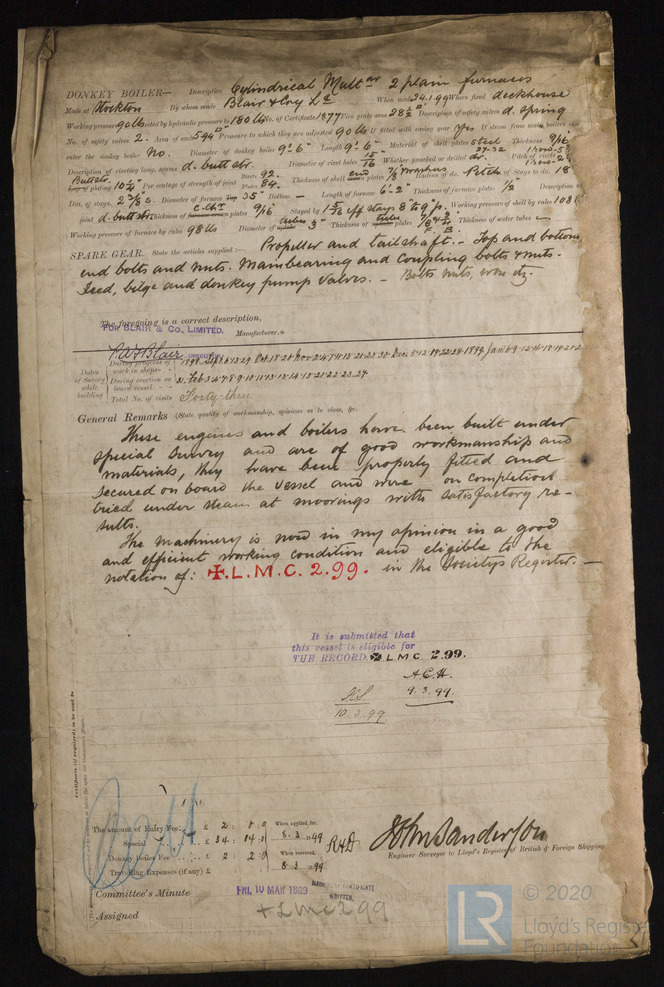 DONKEY BOILER— Description Cylindrical Multar 2 plain furnaces
Made at Stockton By whom made Blair & Coy Ld When made 24.1.99 Where fixed deckhouse
Working pressure 90 lbs tested by hydraulic pressure to 180 lbs No. of Certificate 1977 Fire grate area 28½ Description of safety valves d. spring
No. of safety valves 2 - Area of each 5.94 Pressure to which they are adjusted 90 lbs If fitted with easing gear yes If steam from main boilers can
enter the donkey boiler No. Diameter of donkey boiler 9'. 6" Length 9'. 6" Material of shell plates steel Thickness 9/16
Description of riveting long. seams d. butt str. Diameter of rivet holes 15/16 Whether punched or drilled dr. Pitch of rivets
plating 10¼ Per centage of strength of joint Rivets 92. Plate 84. Thickness of shell end plates 7/8 Radius of do. Pitch of stays do. 18"
Dia. of stays. 2 7/8 S. Diameter of furnace Top 35" Bottom - Length of furnace 6'. 2" Thickness of furnace plates 1/2 Description of
joint d. butt str. Thickness of plates 9/16 Stayed by 1 5/8 eff stays 8" to 9" p. Working pressure of shell by rules 108 l
Working pressure of furnace by rules 98 lbs Diameter of tubes 3" Thickness of tubes Thickness of water tubes –
SPARE GEAR. State the articles supplied:— Propeller and tailshaft. - Top and bottom
end bolts and nuts. Main bearing and coupling bolts & nuts.
Feed, bilge and donkey pump valves. - Bolts nuts, iron etc.
The foregoing is a correct description,
FOR BLAIR & CO., LIMITED. Manufacturer.
Blair
Dates of Survey while building
During progress of work in shops - -
During erection on board vessel - - -
Total No. of visits Forty three
General Remarks (State quality of workmanship, opinions as to class, &c.
These engines and boilers have been built under
special survey and are of good workmanship and
materials, they have been properly fitted and
secured on board the vessel and were on completion
tried under steam at moorings with satisfactory re-
sults.
The machinery is now in my opinion in a good
and efficient working condition and eligible to the
notation of: ✠ L.M.C. 2.99. in the Societys Register. —
It is submitted that
this vessel is eligible for
THE RECORD. ✠ L M C 2.99.
A.C.H.
9.3.99.
10.3.99
Certificate (if required) to be sent to
The amount of Entry Fee.. £ 2 : 0 . 0 When applied for,
Special .. £ 34 : 14 : 8.3.1899 RHD
Donkey Boiler Fee .. £ 2 : 2 : 0 When received,
Travelling Expenses (if any) £ 8.3.1899
John Sanderson
Engineer Surveyor to Lloyd's Register of British & Foreign Shipping
Committee's Minute FRI. 10 MAR 1899
CERTIFICATE WRITTEN.
Assigned + LMC 2 99
LR © 2020
Lloyd's Register
Foundation